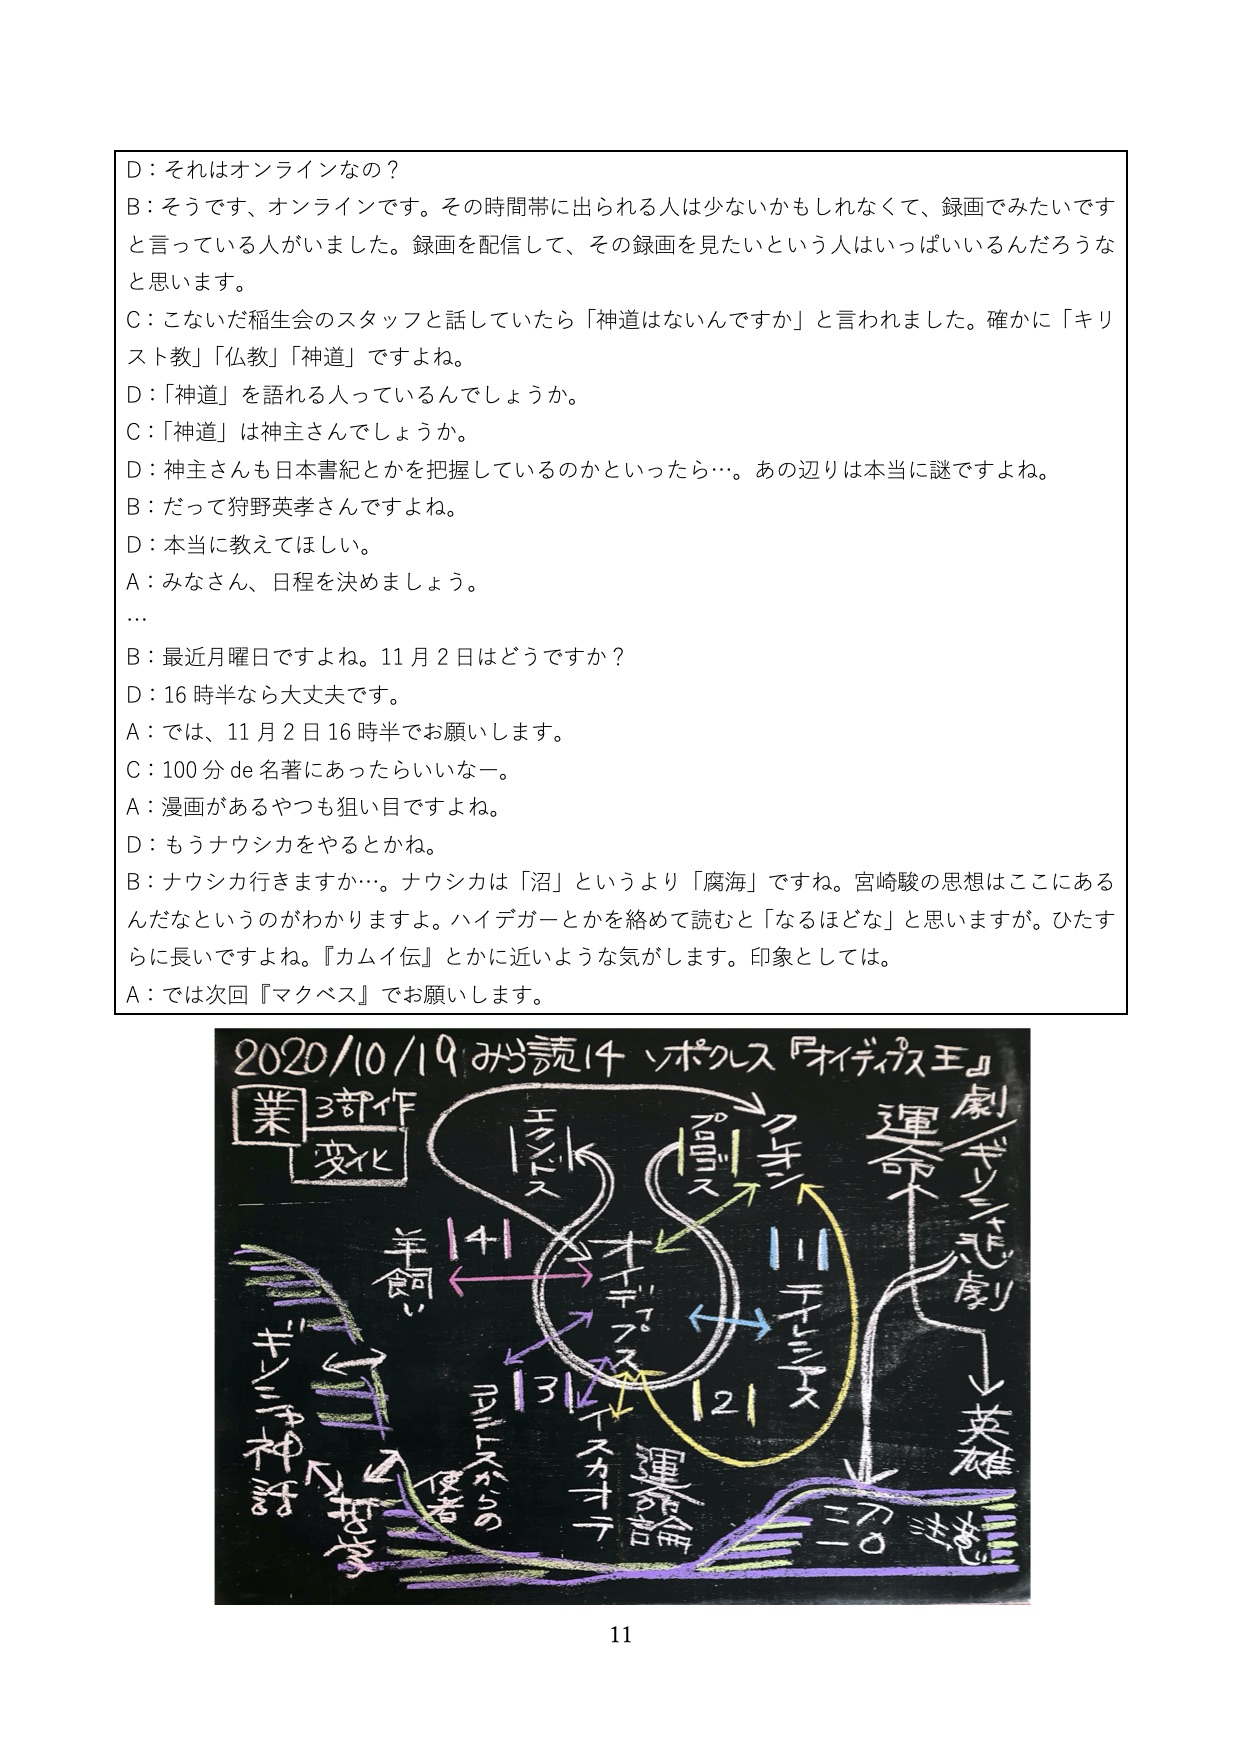 D：それはオンラインなの？
B：そうです、オンラインです。その時間帯に出られる人は少ないかもしれなくて、録画でみたいです
と言っている人がいました。録画を配信して、その録画を見たいという人はいっぱいいるんだろうな
と思います。
C：こないだ稲生会のスタッフと話していたら「神道はないんですか」と言われました。確かに「キリ
スト教」「仏教」「神道」ですよね。
D：「神道」を語れる人っているんでしょうか。
C：「神道」は神主さんでしょうか。
D：神主さんも日本書紀とかを把握しているのかといったら…。あの辺りは本当に謎ですよね。
B：だって狩野英孝さんですよね。
D：本当に教えてほしい。
A：みなさん、日程を決めましょう。
…
B：最近月曜日ですよね。11月2日はどうですか？
D：16時半なら大丈夫です。
A：では、11月2日16時半でお願いします。
C：100分de名著にあったらいいなー。
A：漫画があるやつも狙い目ですよね。
D：もうナウシカをやるとかね。
B：ナウシカ行きますか…。ナウシカは「沼」というより「腐海」ですね。宮崎駿の思想はここにある
んだなというのがわかりますよ。ハイデガーとかを絡めて読むと「なるほどな」と思いますが。ひたす
らに長いですよね。『カムイ伝』とかに近いような気がします。印象としては。
A：では次回『マクベス』でお願いします。
2020/10/19 みら読14 ソポクレス『オイディプス王』
業
3部作
変化
エクソドス
プロロゴス
クレオン
運命
劇/ギリシャ悲劇
羊飼い
|4|
オイディプス
|1|
テイレシアス
|3|
|2|
コリントスからの
使者
イオカステ
運命論
英雄
ギリシャ神話
哲学
11